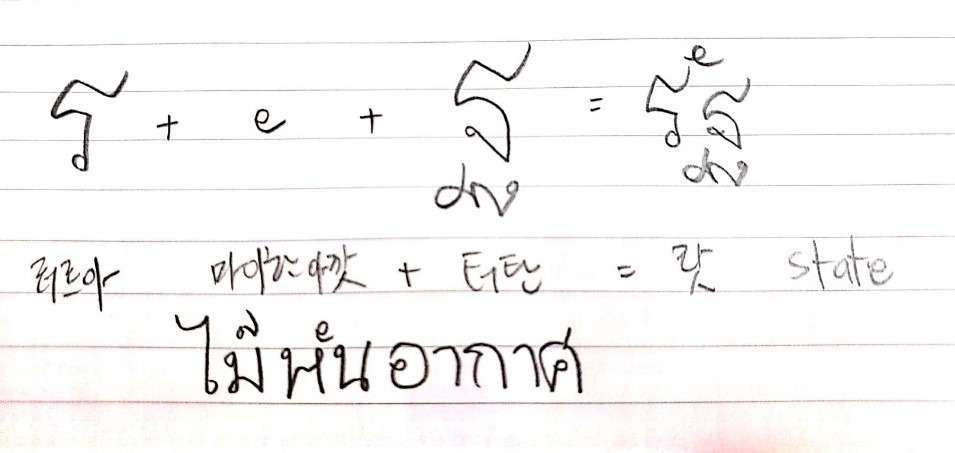 ร + ั + ฐ = รัฐ
러르아 마이한아깟 + 터탄 = 랏 state
ไม้หันอากาศ